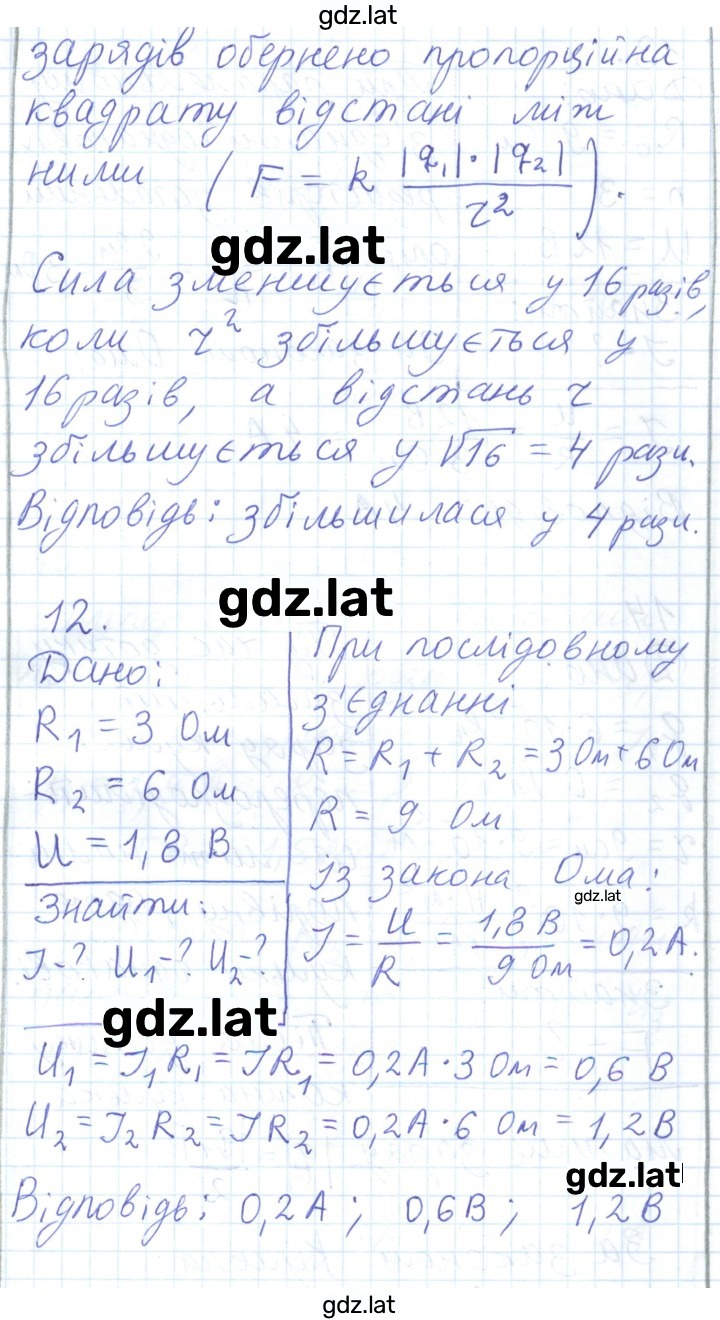 gdz.lat
зарядів обернено пропорційна
квадрату відстані між
ними (F = k |q₁|·|q₂| / r²).
gdz.lat
Сила зменшується у 16 разів,
коли r² збільшується у
16 разів, а відстань r
збільшується у √16 = 4 рази.
Відповідь: збільшилася у 4 рази.
gdz.lat
12.
Дано:
R₁ = 3 Ом
R₂ = 6 Ом
U = 1,8 В
Знайти:
I-? U₁-? U₂-?
При послідовному
з'єднанні
R = R₁ + R₂ = 3 Ом + 6 Ом
R = 9 Ом
Із закона Ома:
gdz.lat
I = U/R = 1,8 В / 9 Ом = 0,2 А.
gdz.lat
U₁ = I₁R₁ = IR₁ = 0,2А · 3 Ом = 0,6 В
U₂ = I₂R₂ = IR₂ = 0,2А · 6 Ом = 1,2 В
gdz.lat
Відповідь: 0,2А; 0,6В; 1,2В
gdz.lat